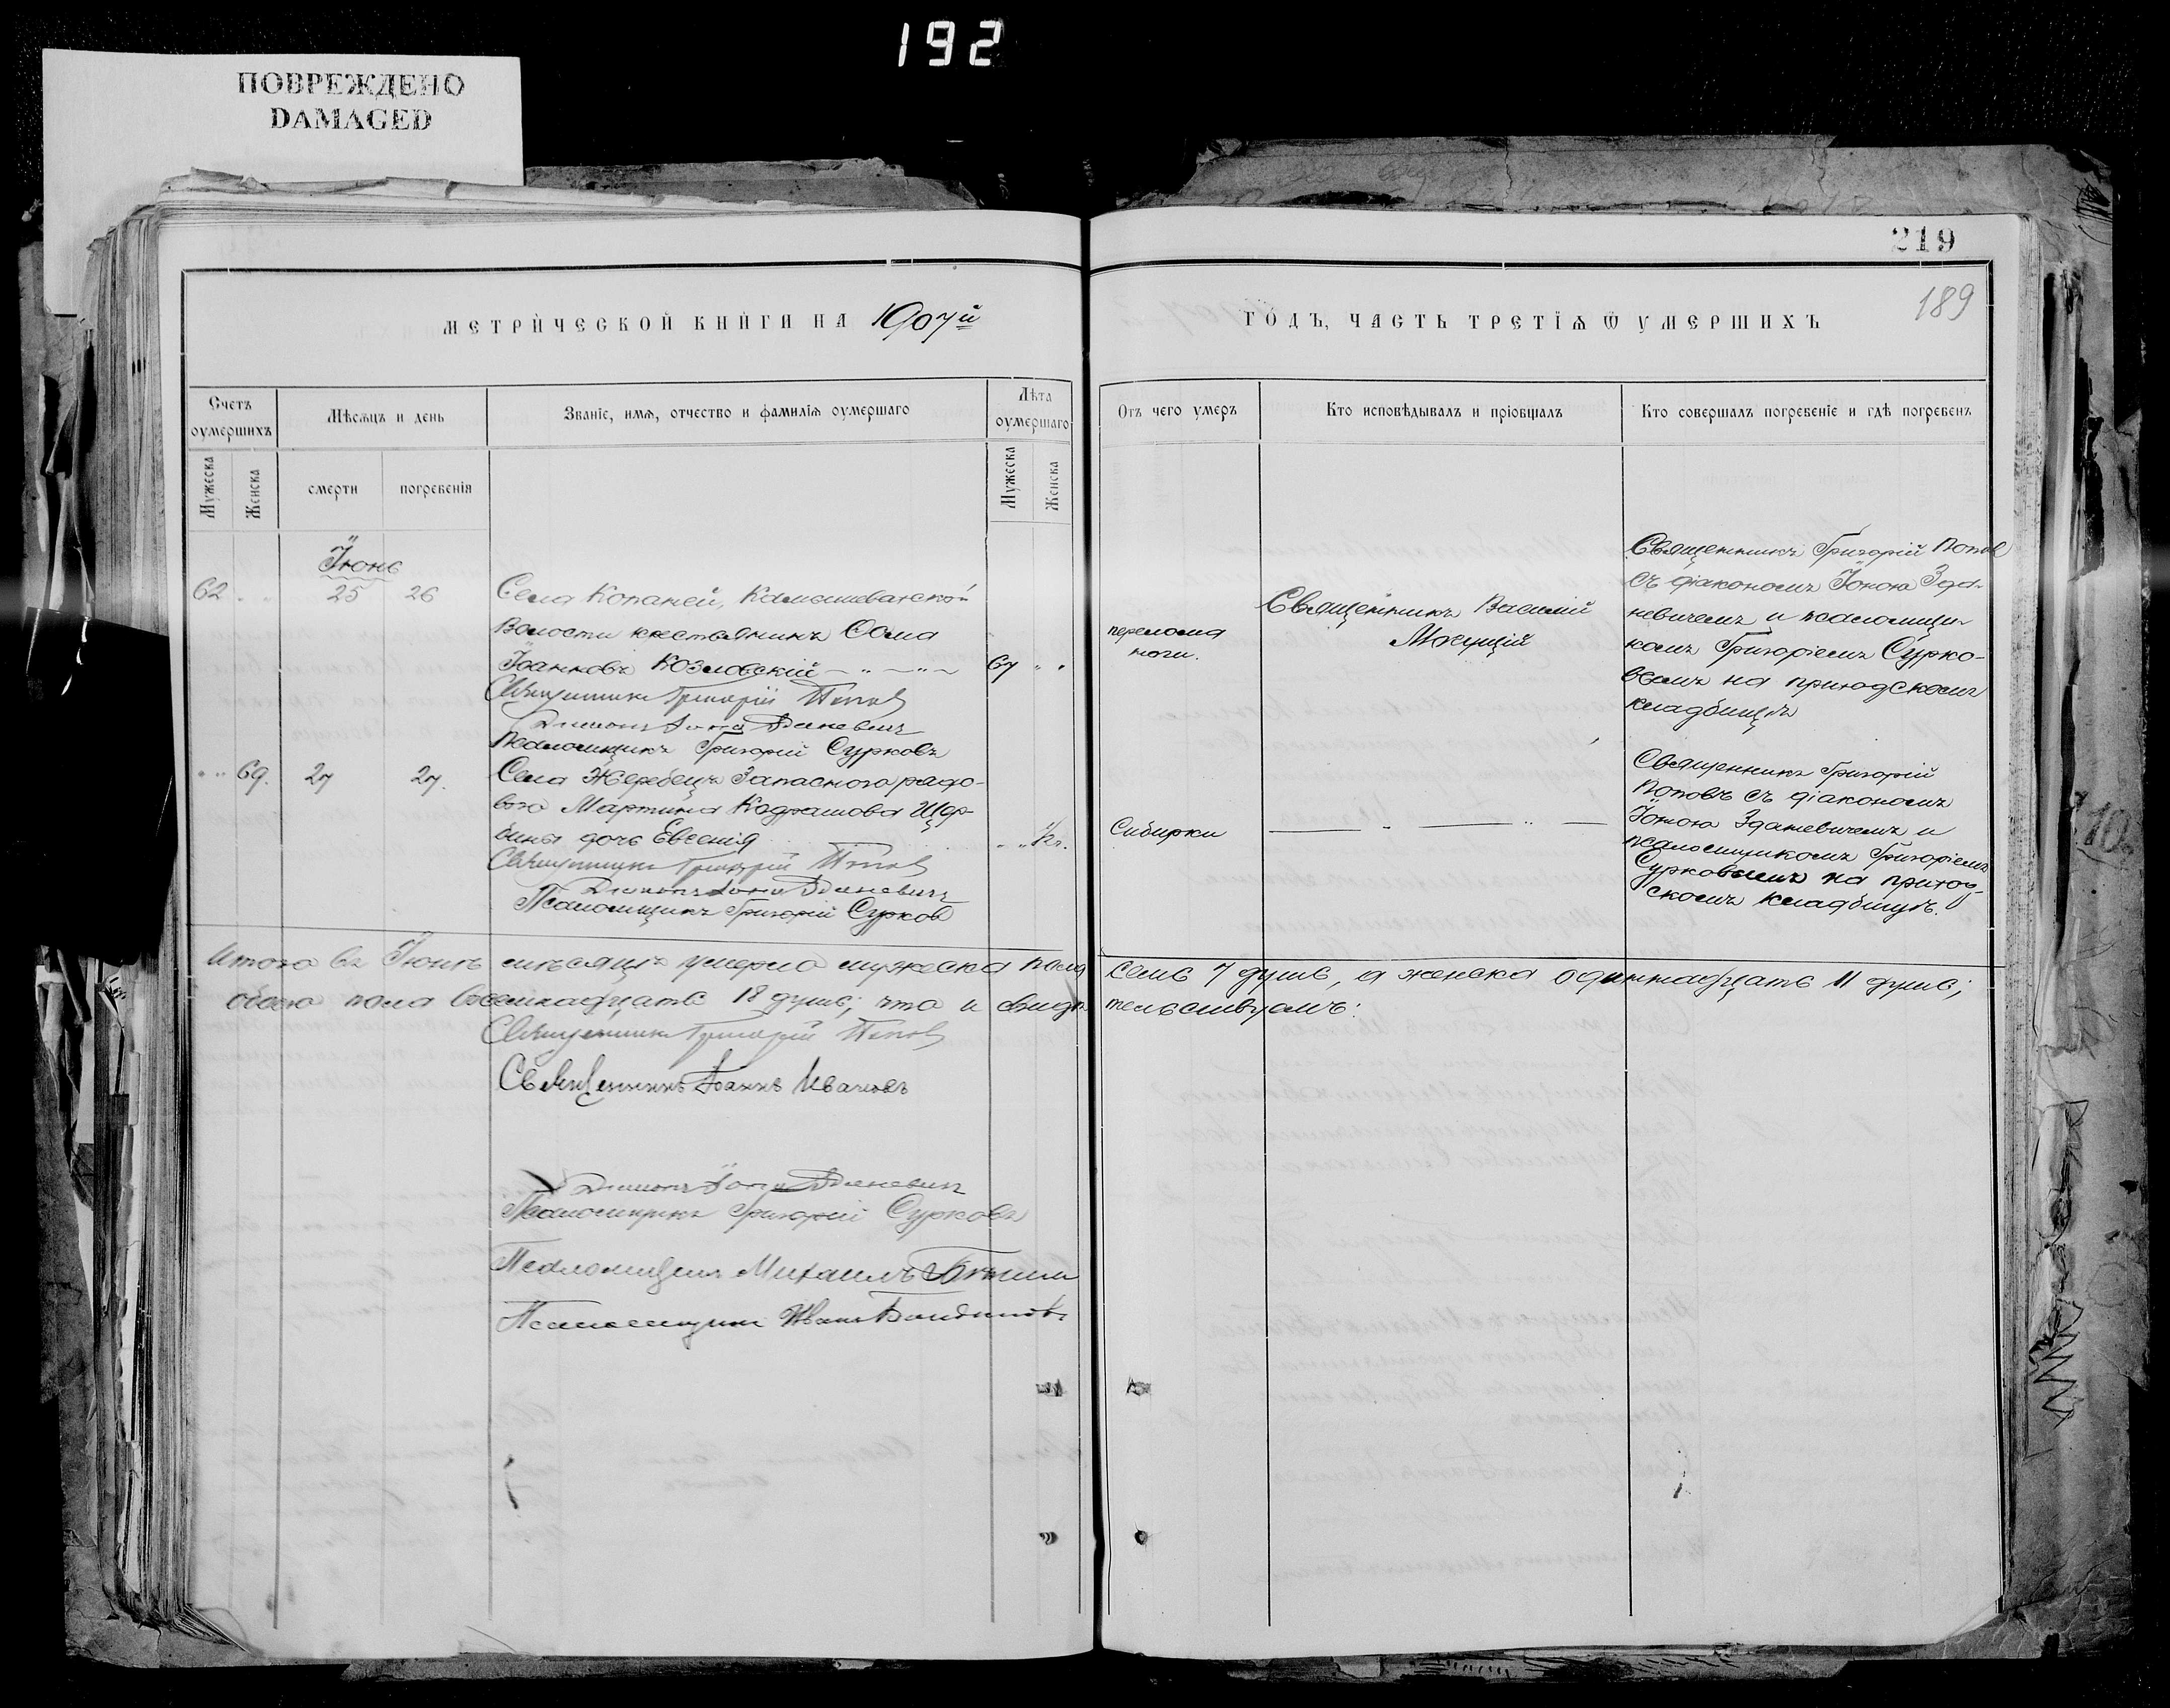 192
ПОВРЕЖДЕНО
DAMAGED
219
189
МЕТРИЧЕСКОЙ КНИГИ НА 1907й
ГОДЪ, ЧАСТЬ ТРЕТІѦ Ѿ УМЕРШИХЪ
Счетъ оумершихъ
Мѣсѧцъ и день
Званіе, имѧ, отчество и фамиліѧ оумершаго
Лѣта оумершаго
Отъ чего умеръ
Кто исповѣдывалъ и пріобщалъ
Кто совершалъ погребеніе и гдѣ погребенъ
Мужеска
Женска
смерти
погребенія
Мужеска
Женска
Іюнь
62 25 26
Села Копаней, Камышеватской
Волости крестьянинъ Ѳома
Іоанновъ Козловскій 67
Священникъ Григорій Поповъ
Діаконъ Іона Зданевичъ
Псаломщикъ Григорій Сурковъ
перелома
ноги.
Священникъ Василій
Мощицій
Священникъ Григорій Поповъ
съ діакономъ Іоною Зда-
невичемъ и псаломщи-
комъ Григоріемъ Сурко-
вымъ на приходскомъ
кладбищѣ
69. 27 27.
Села Жеребецъ Запасного рядо-
вого Мартина Кодрашова Щер-
бины дочь Евгенія 1/2 г.
Священникъ Григорій Поповъ
Діаконъ Іона Зданевичъ
Псаломщикъ Григорій Сурков
Сибирки
Священникъ Григорій
Поповъ съ діакономъ
Іоною Зданевичемъ и
псаломщикомъ Григоріемъ
Сурковымъ на приход-
скомъ кладбищѣ.
Итого въ Іюнѣ мѣсяцѣ умерло мужеска пола семь 7 душъ, а женска одиннадцать 11 душъ;
обоего пола восемнадцать 18 душъ; что и свидѣтельствуемъ:
Священникъ Григорій Поповъ
Священникъ Іоаннъ Ивановъ
Діаконъ Іона Зданевичъ
Псаломщикъ Григорій Сурковъ
Псаломщикъ Михаилъ
Псаломщикъ Иванъ